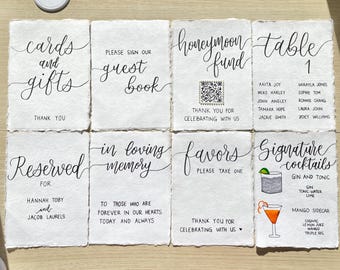 cards
and
gifts
THANK YOU
PLEASE SIGN OUR
guest
book
honeymoon
fund
THANK YOU FOR
CELEBRATING WITH US
table
1
ANITA JOY
MIKE HARLEY
JOHN ANSLEY
TAMARA HOPE
JACKIE SMITH
MIRAYLA JONES
SOPHIE TOM
RONNIE CHANG
LAURA JOHN
JOEY WILLIAMS
Reserved
FOR
HANNAH TOBY
and
JACOB LAURELS
in loving
memory
TO THOSE WHO ARE
FOREVER IN OUR HEARTS
TODAY AND ALWAYS
favors
PLEASE TAKE ONE
THANK YOU FOR
CELEBRATING WITH US ♥
Signature
cocktails
GIN AND TONIC
GIN
TONIC WATER
LIME
MANGO SIDECAR
COGNAC
LEMON JUICE
MANGO
TRIPLE SEC